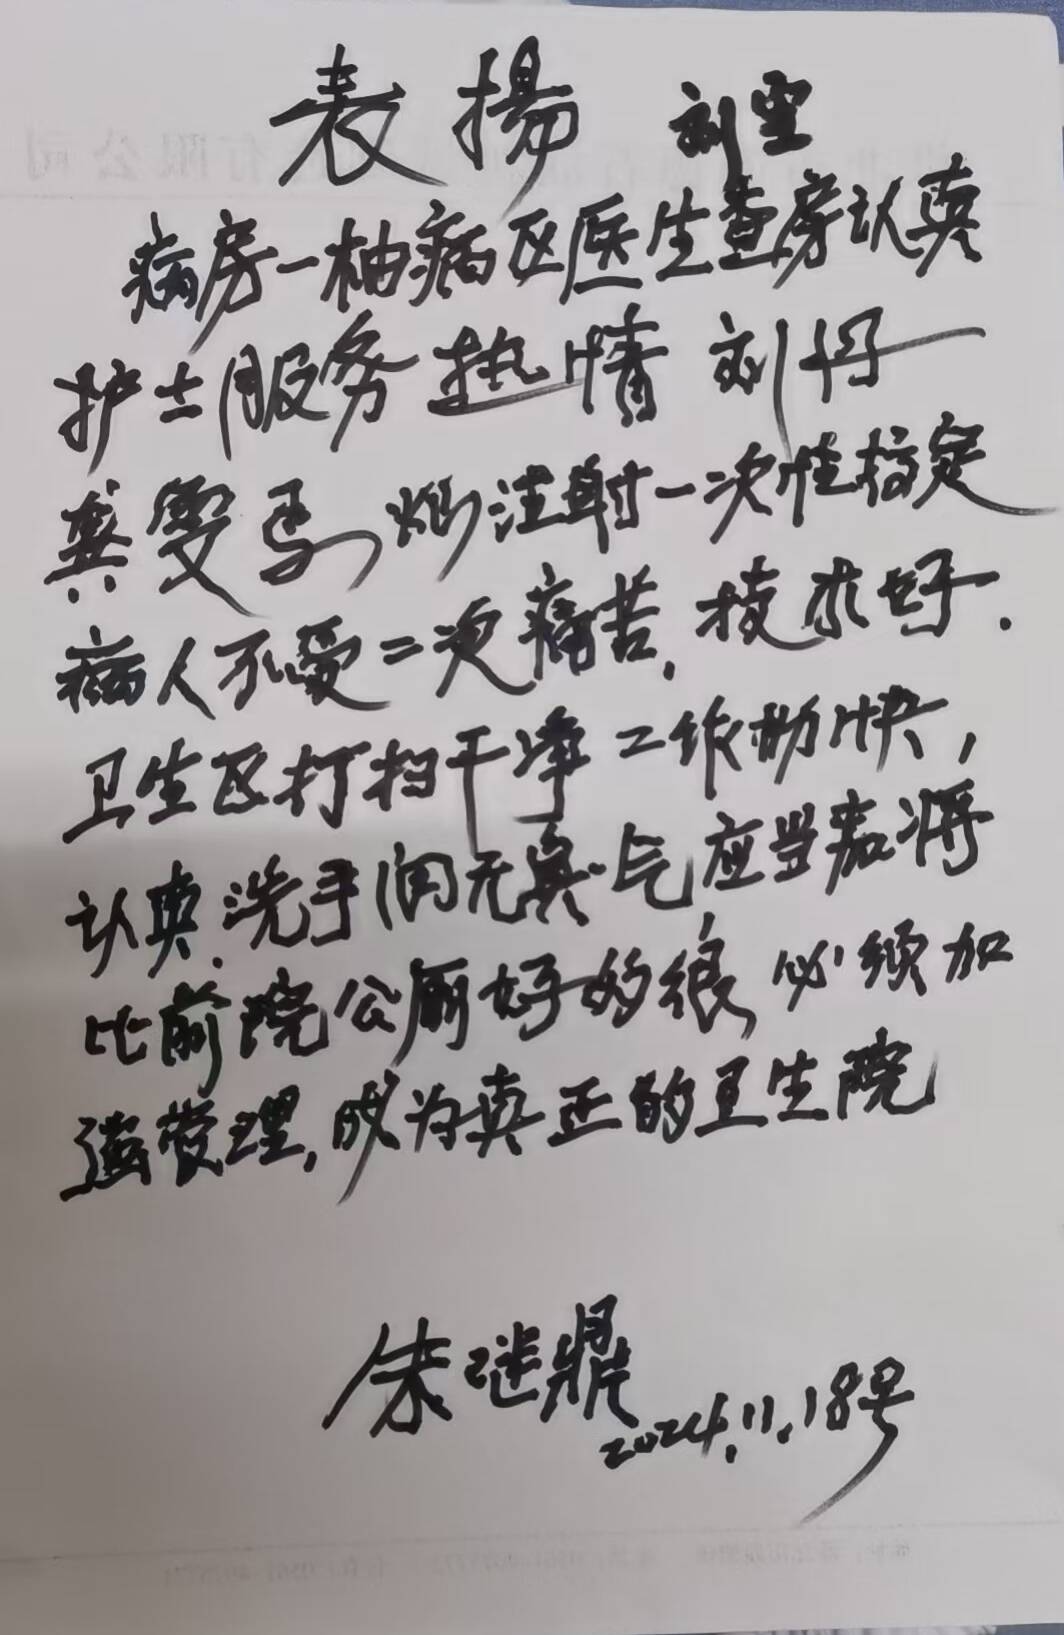 表揚 刘雪
病房一柚病区医生查房认真
护士服务热情 刘丹
龚雯 马灿注射一次性搞定
病人不受二次痛苦,技术好.
卫生区打扫干净工作勤快,
认真.洗手间无臭气应当嘉奖
比前院公厕好的很 必须加
强管理,成为真正的卫生院
朱继鼎
2024.11.18号